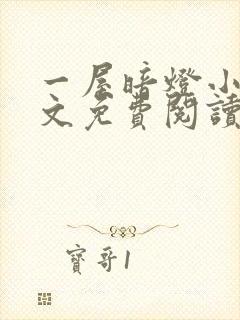 一屋暗燈小
文免費閱讀
寶哥1